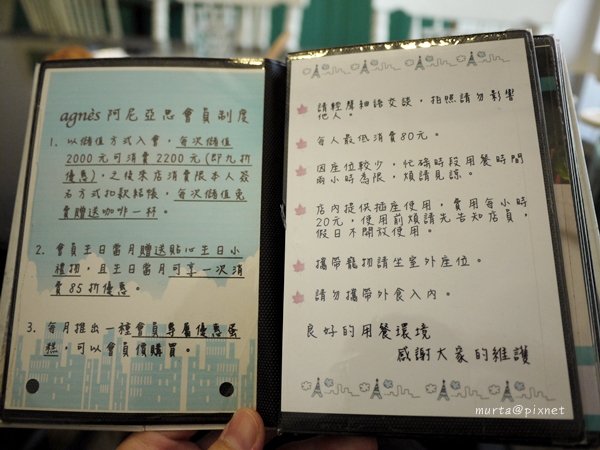 agnès 阿尼亞思會員制度
1. 以儲值方式入會，每次儲值
2000元可消費2200元(即九折
優惠)，之後來店消費限本人簽
名方式扣款結帳，每次儲值免
費贈送咖啡一杯。
2. 會員生日當月贈送貼心生日小
禮物，且生日當月可享一次消
費85折優惠。
3. 每月推出一種會員專屬優惠蛋
糕，可以會員價購買。
請輕聲細語交談，拍照請勿影響
他人。
每人最低消費80元。
因座位較少，忙碌時段用餐時間
兩小時為限，煩請見諒。
店內提供插座使用，費用每小時
20元，使用前煩請先告知店員，
假日不開放使用。
攜帶寵物請坐室外座位。
請勿攜帶外食入內。
良好的用餐環境
感謝大家的維護
murta@pixnet